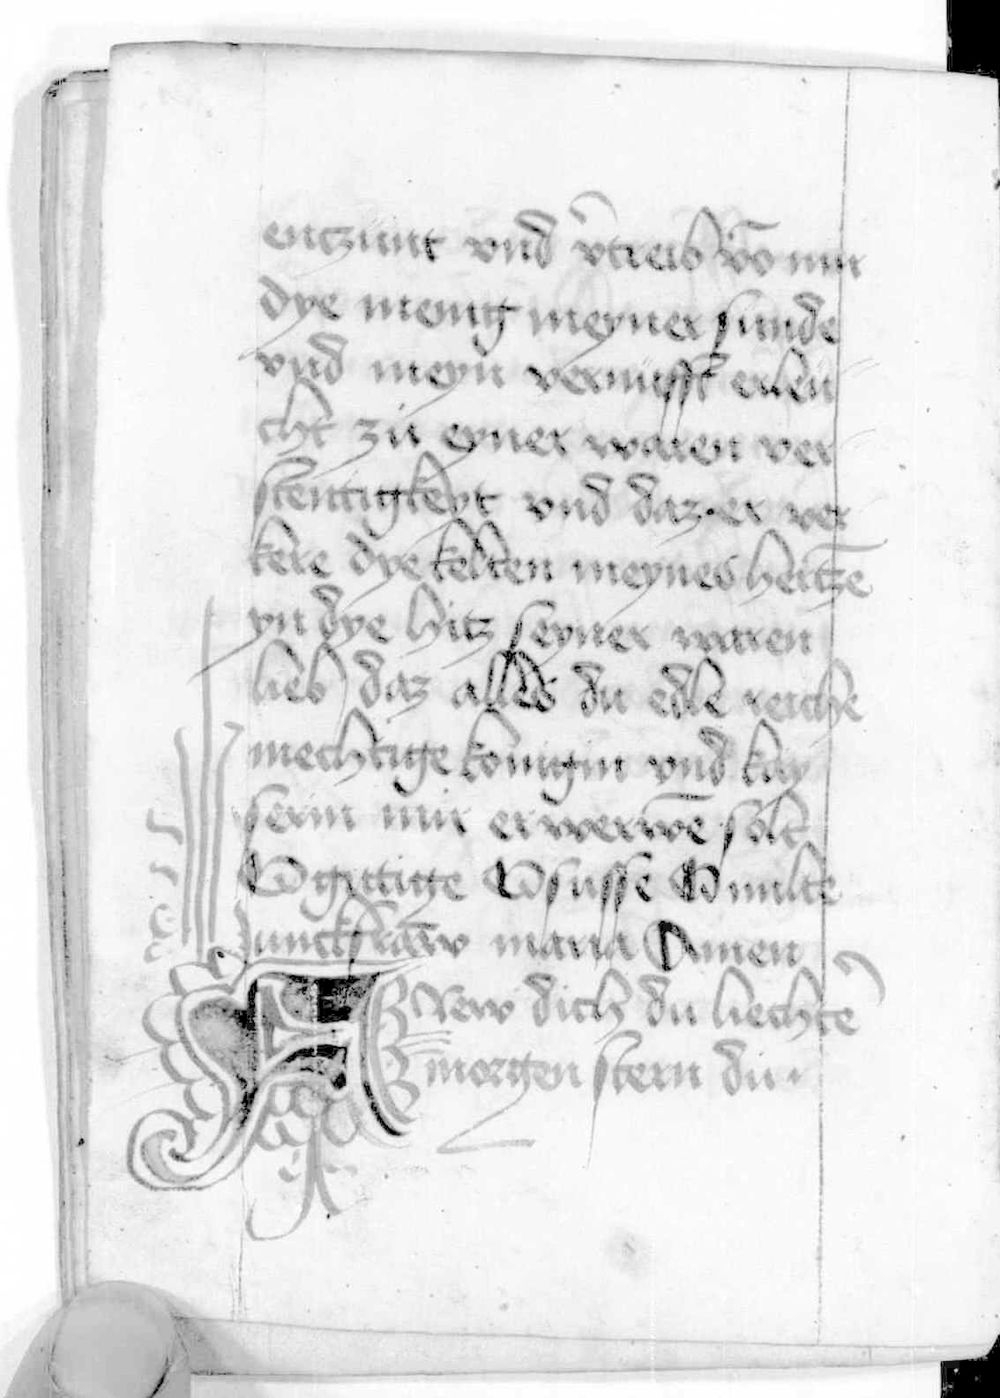 entzunt vnd v̾treib vō mir
dye menig meyner sunde
vnd meyn vernufft erleu
cht zu eyner waren ver
stentigkeyt vnd daz er ver
kere dye kelten meynes hertzē
yn dye hitz seyner waren
lieb daz alles du edle reiche
mechtige konigin vnd kay
serin mir erwerwē solt
O gutige O susse O milte
Junckfraw maria Amen
FRew dich du liechter
morgen stern du